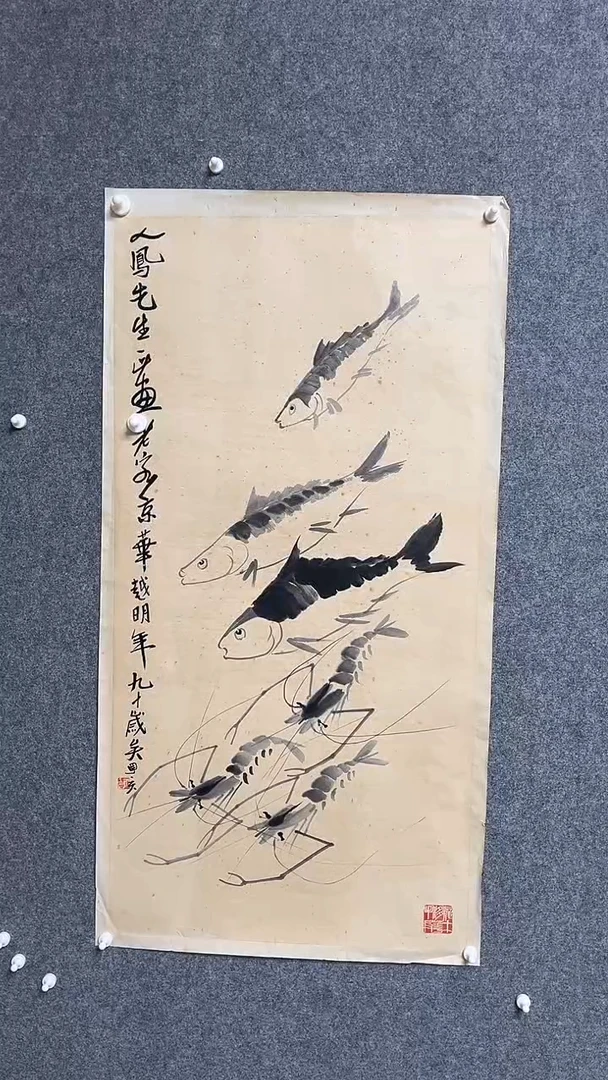 人鳳先生正畫老客京華越明年九十歲矣